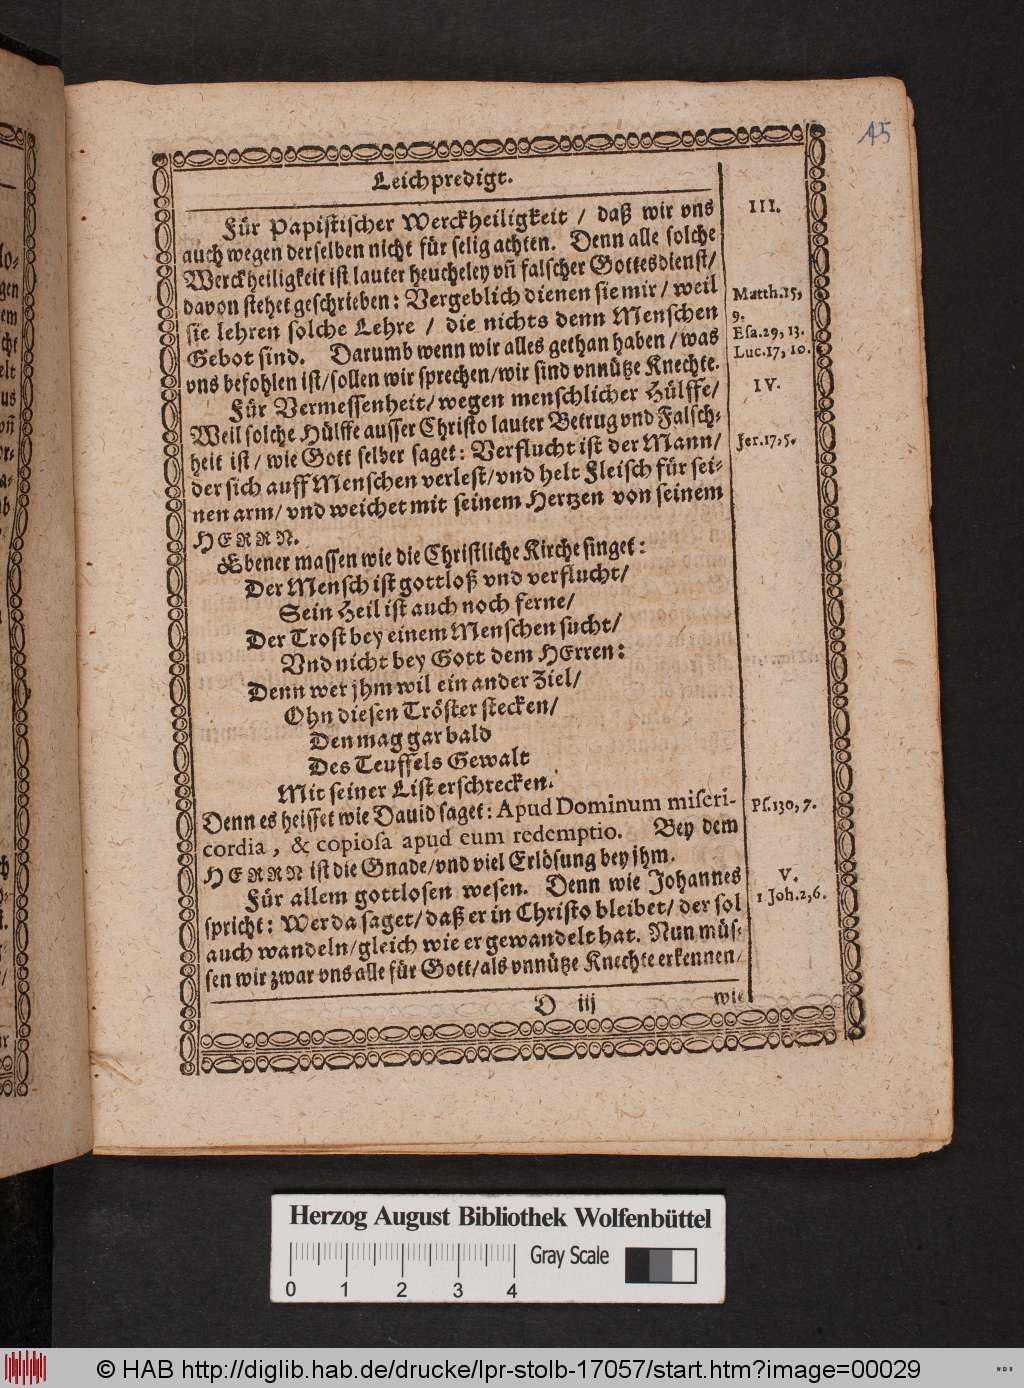 15
Leichpredigt.
Für Papistischer Werckheiligkeit / daß wir vns
III.
auch wegen derselben nicht für selig achten. Denn alle solche
Werckheiligkeit ist lauter heucheley vñ falscher Gottesdienst/
davon stehet geschrieben: Vergeblich dienen sie mir / weil
Matth.15,
9.
sie lehren solche Lehre / die nichts denn Menschen
Esa.29, 13.
Gebot sind. Darumb wenn wir alles gethan haben / was
Luc.17, 10.
vns befohlen ist/sollen wir sprechen/wir sind vnnütze Knechte.
Für Vermessenheit/ wegen menschlicher Hülffe/
IV.
Weil solche Hülffe ausser Christo lauter Betrug vnd Falsch-
heit ist / wie Gott selber saget: Verflucht ist der Mann/
Jer.17,5.
der sich auff Menschen verlest/vnd helt Fleisch für sei-
nen arm/ vnd weichet mit seinem Hertzen von seinem
HERRN.
Ebener massen wie die Christliche Kirche singet:
Der Mensch ist gottloß vnd verflucht/
Sein Heil ist auch noch ferne/
Der Trost bey einem Menschen sucht/
Vnd nicht bey Gott dem HErren:
Denn wer jhm wil ein ander Ziel/
Ohn diesen Tröster stecken/
Den mag gar bald
Des Teuffels Gewalt
Mit seiner List erschrecken.
Denn es heisset wie Dauid saget: Apud Dominum miseri-
Ps.130, 7.
cordia, & copiosa apud eum redemptio. Bey dem
HERRN ist die Gnade/vnd viel Erlösung bey jhm.
Für allem gottlosen wesen. Denn wie Johannes
V.
spricht: Wer da saget/ daß er in Christo bleibet/ der sol
1 Joh.2,6.
auch wandeln/gleich wie er gewandelt hat. Nun müs-
sen wir zwar vns alle für Gott/als vnnütze Knechte erkennen/
D iij
wie
Herzog August Bibliothek Wolfenbüttel
Gray Scale
0 1 2 3 4
© HAB http://diglib.hab.de/drucke/lpr-stolb-17057/start.htm?image=00029